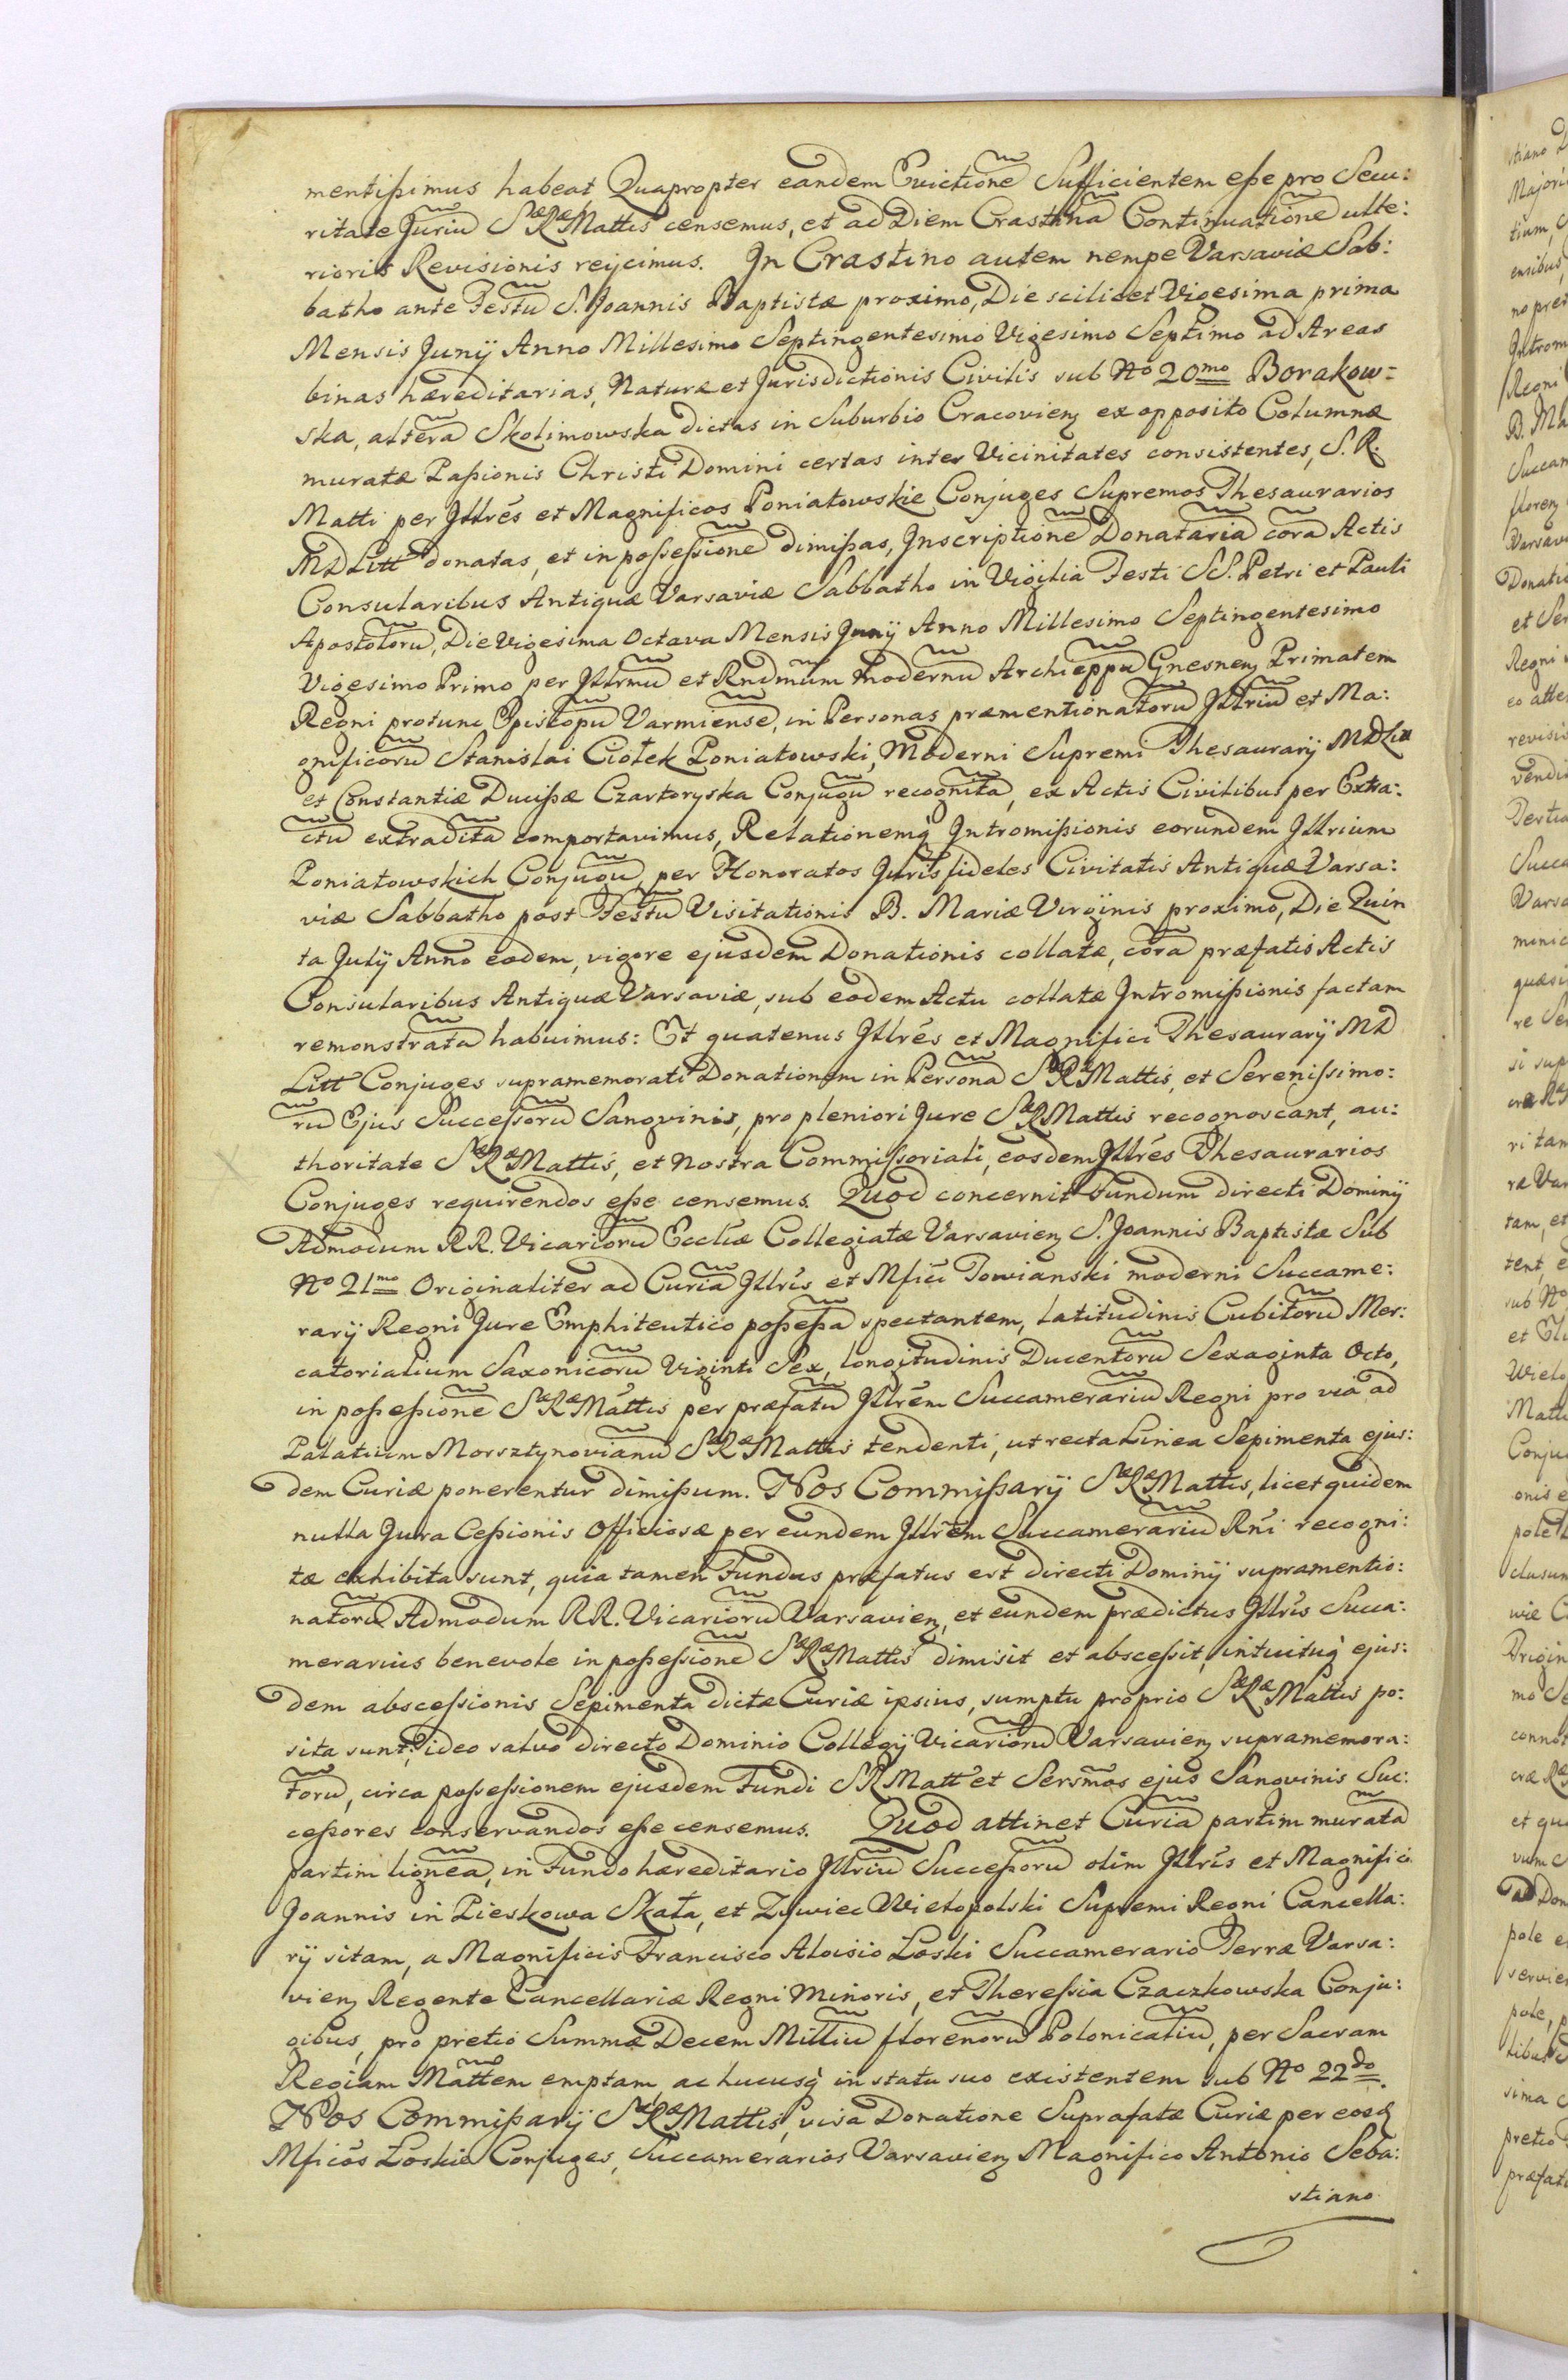 mentissimus habeat Quapropter eandem Evictione Sufficientem esse pro Secu:
ritate Juriu Sæ Ræ Mattis censemus, et ad Diem Crastina Continuatione ulte:
rioris Revisionis reijcimus. In Crastino autem nempe Varsaviæ Sab:
batho ante Festu S. Joannis Baptistæ proximo, Die scilicet Vigesima prima
Mensis Junij Anno Millesimo Septingentesimo Vigesimo Septimo ad Areas
binas hæreditarias, Naturæ et Jurisdictionis Civilis sub No 20mo Borakow=
ska, altera Skolimowska dictas in Suburbio Cracovien ex opposito Columnæ
muratæ Passionis Christi Domini certas inter Vicinitates consistentes, S. R.
Matti per Jllrés et Magnificos Poniatowskie Conjuges Supremos Thesaurarios
MDLitt donatas, et in possessione dimissas, Inscriptione Donataria cora Actis
Consularibus Antiquæ Varsaviæ Sabbatho in Vigilia Festi SS. Petri et Pauli
Apostoloru, Die Vigesima Octava Mensis Junij Anno Millesimo Septingentesimo
Vigesimo Primo per Jllrmu et Rndmum modernu Archieppu Gnesnen Primatem
Regni protunc Episcopu Varmiense, in Personas præmentionatoru Jllriu et Ma:
gnificoru Stanislai Ciołek Poniatowski, Moderni Supremi Thesaurarij MDLitt
et Constantiæ Ducissæ Czartoryska Conjugu recognita, ex Actis Civilibus per Extra:
ctu extradita comportavimus, Relationemq Intromissionis eorundem Jllrium
Poniatowskich Conjugu, per Honoratos Jurisfideles Civitatis Antiquæ Varsa:
viæ Sabbatho post Festu Visitationis B. Mariæ Virginis proximo, Die Quin
ta Julij Anno eodem, vigore ejusdem Donationis collatæ, cora præfatis Actis
Consularibus Antiquæ Varsaviæ, sub eodem Actu collatæ Intromissionis factam
remonstrata habuimus: Et quatenus Jllrés et Magnifici Thesaurarij MD
Litt Conjuges supramemorati Donationem in Persona Sæ Ræ Mattis, et Serenissimo:
ru Ejus Successoru Sangvinis, pro pleniori Jure Sæ R Mattis recognoscant, au:
thoritate Sæ Ræ Mattis, et Nostra Commissoriali, eosdem Jllrés Thesaurarios
Conjuges requirendos esse censemus. Quod concernit Fundum directi Dominij
Admodum RR. Vicarioru Eccliæ Collegiatæ Varsavien S. Joannis Baptistæ Sub
No 21mo Originaliter ad Curia Jllris et Mfici Towianski moderni Succame:
rarij Regni Jure Emphiteutico possessa spectantem, latitudinis Cubitoru Mer:
catorialium Saxonicoru Viginti Sex, longitudinis Ducentoru Sexaginta Octo,
in possessione Sæ Ræ Mattis per præfatu Jllrém Succamerariu Regni pro via ad
Palatium Morsztynovianu Sæ Ræ Mattis tendenti, ut recta Linea Sepimenta ejus:
dem Curiæ ponerentur dimissum. Nos Commissarij Sæ Ræ Mattis, licet quidem
nulla Jura Cessionis Officiosæ per eundem Jllrém Succamerariu Rni recogni:
tæ exhibita sunt, quia tamen Fundus præfatus est directi Dominij supramentio:
natoru Admodum RR. Vicarioru Varsavien, et eundem prædictus Jllris Succa:
merarius benevole in possessione Sæ Ræ Mattis dimisit et abscessit, intuituq ejus:
dem abscessionis Sepimenta dictæ Curiæ ipsius, sumptu proprio Sæ Ræ Mattis po:
sita sunt; ideo salvo directo Dominio Collegij Vicarioru Varsavien supramemora:
toru, circa possessionem ejusdem Fundi S R Matt et Sersmos ejus Sangvinis Suc:
cessores conservandos esse censemus. Quod attinet Curia partim murata
partim lignea, in Fundo hæreditario Jllriu Successoru olim Jllris et Magnifici
Joannis in Pieskowa Skała, et Zywiec Wielopolski Supremi Regni Cancella:
rij sitam, a Magnificis Francisco Aloisio Łoski Succamerario Terræ Varsa:
vien Regente Cancellariæ Regni Minoris, et Theressia Czaczkowska Conju:
gibus, pro pretio Summæ Decem Milliu florenoru Polonicaliu, per Sacram
Regiam Mattem emptam, ac hucusq in statu suo existentem sub No 22do.
Nos Commissarij Sæ Ræ Mattis, visa Donatione Suprafatæ Curiæ per eosd
Mficós Łoskie Conjuges, Succamerarios Varsavien Magnifico Antonio Seba:
stiano